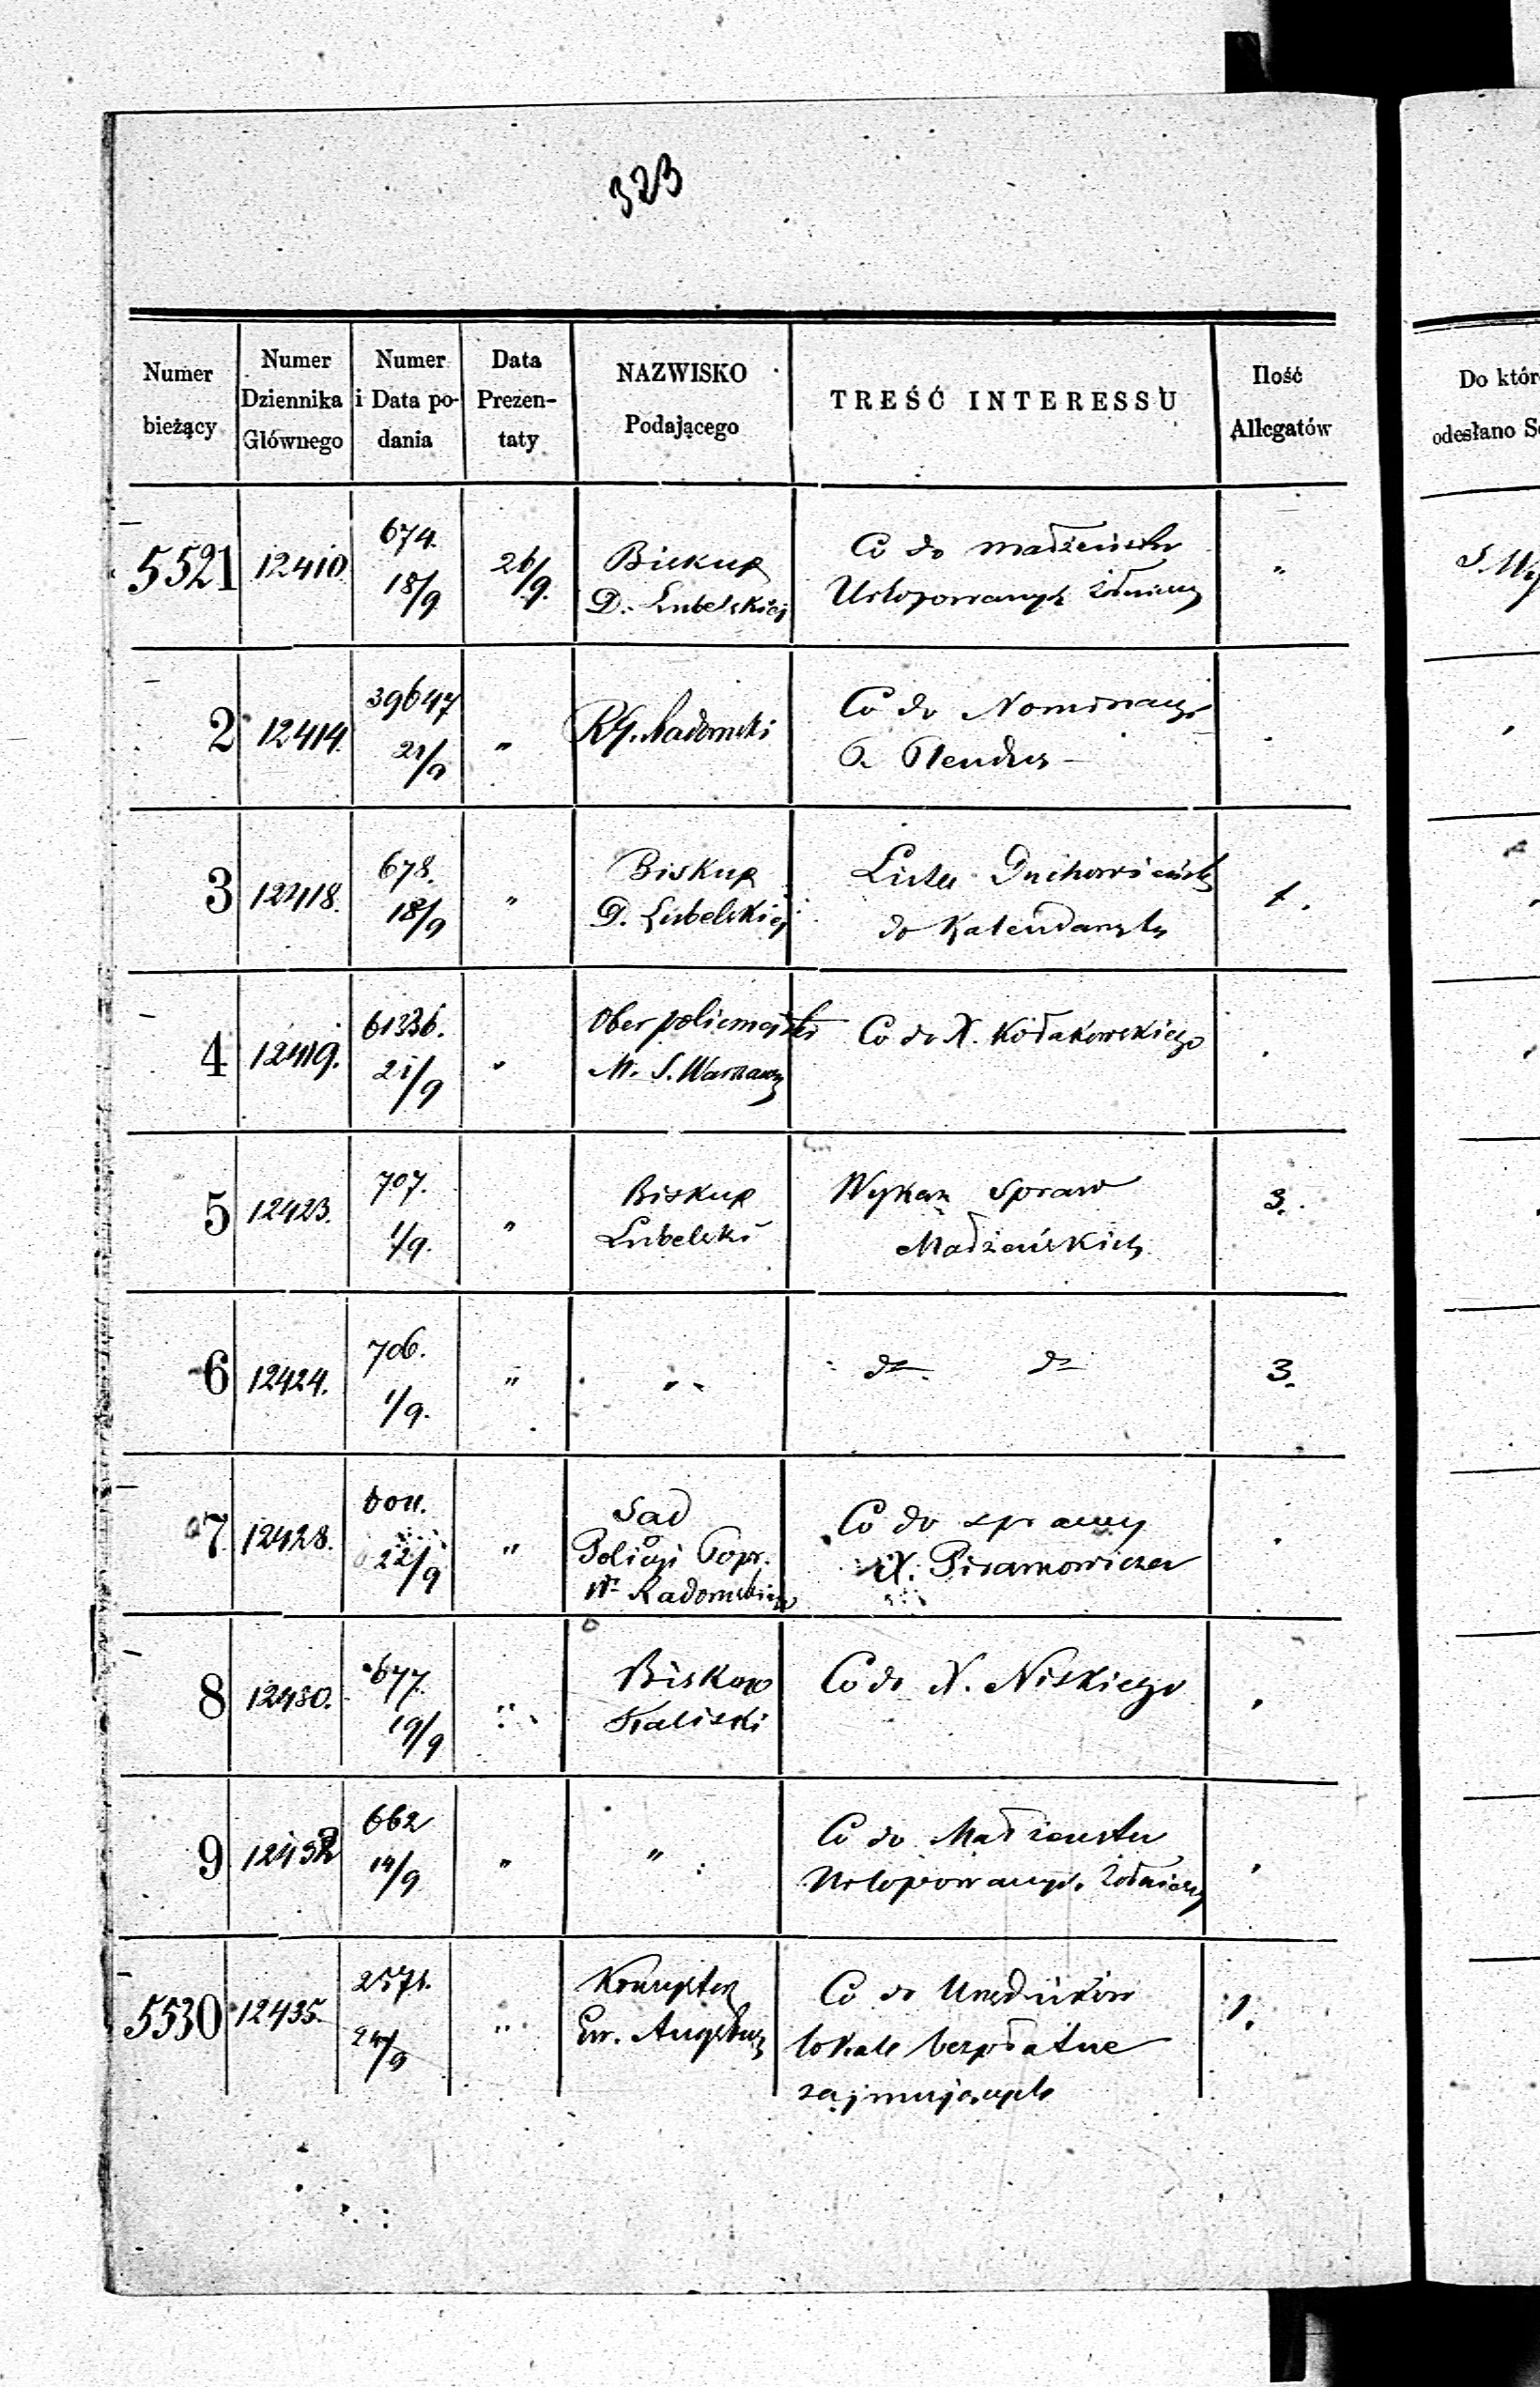 323
Numer bieżący | Numer Dziennika Głównego | Numer i Data podania | Data Prezentaty | NAZWISKO Podającego | TREŚĆ INTERESSU | Ilość Allegatów | Do któr
odesłano
5521 | 12410 | 674. 18/9 | 26/9. | Biskup D. Lubelskiej | Co do małżeństw Urlopowanych żołnierzy | "
2 | 12414. | 39647 21/9 | " | R.G. Radomski | Co do Nominacyi
3 | 12418. | 678. 18/9 | " | Biskup D. Lubelskiej | Lista Duchowieństwa do Kalendarzyka | 1.
4 | 12419. | 61336. 21/9 | " | Oberpolicmajster M. S. Warszawy | Co do X. Kołakowskiego
5 | 12423. | 707. 1/9. | " | Biskup Lubelski | Wykaz Spraw Małżeńskich | 3.
6 | 12424. | 706. 1/9. | " | " | do do | 3.
7 | 12428. | 22/9 | " | Sąd Policyi Popr. Wu Radomskiego | Co do sprawy X. Piramowicza
8 | 12430. | 677. 19/9 | " | Biskup Kaliski | Co do X. Niskiego
9 | 662 14/9 | " | " | Co do Małżeństw Urlopowanych żołnierzy
5530 | 12435. | 2571. 24/9 | " | Konsystorz Ew. Augsburg | Co do Urzędników lokale bezpłatne zajmujących | 1.